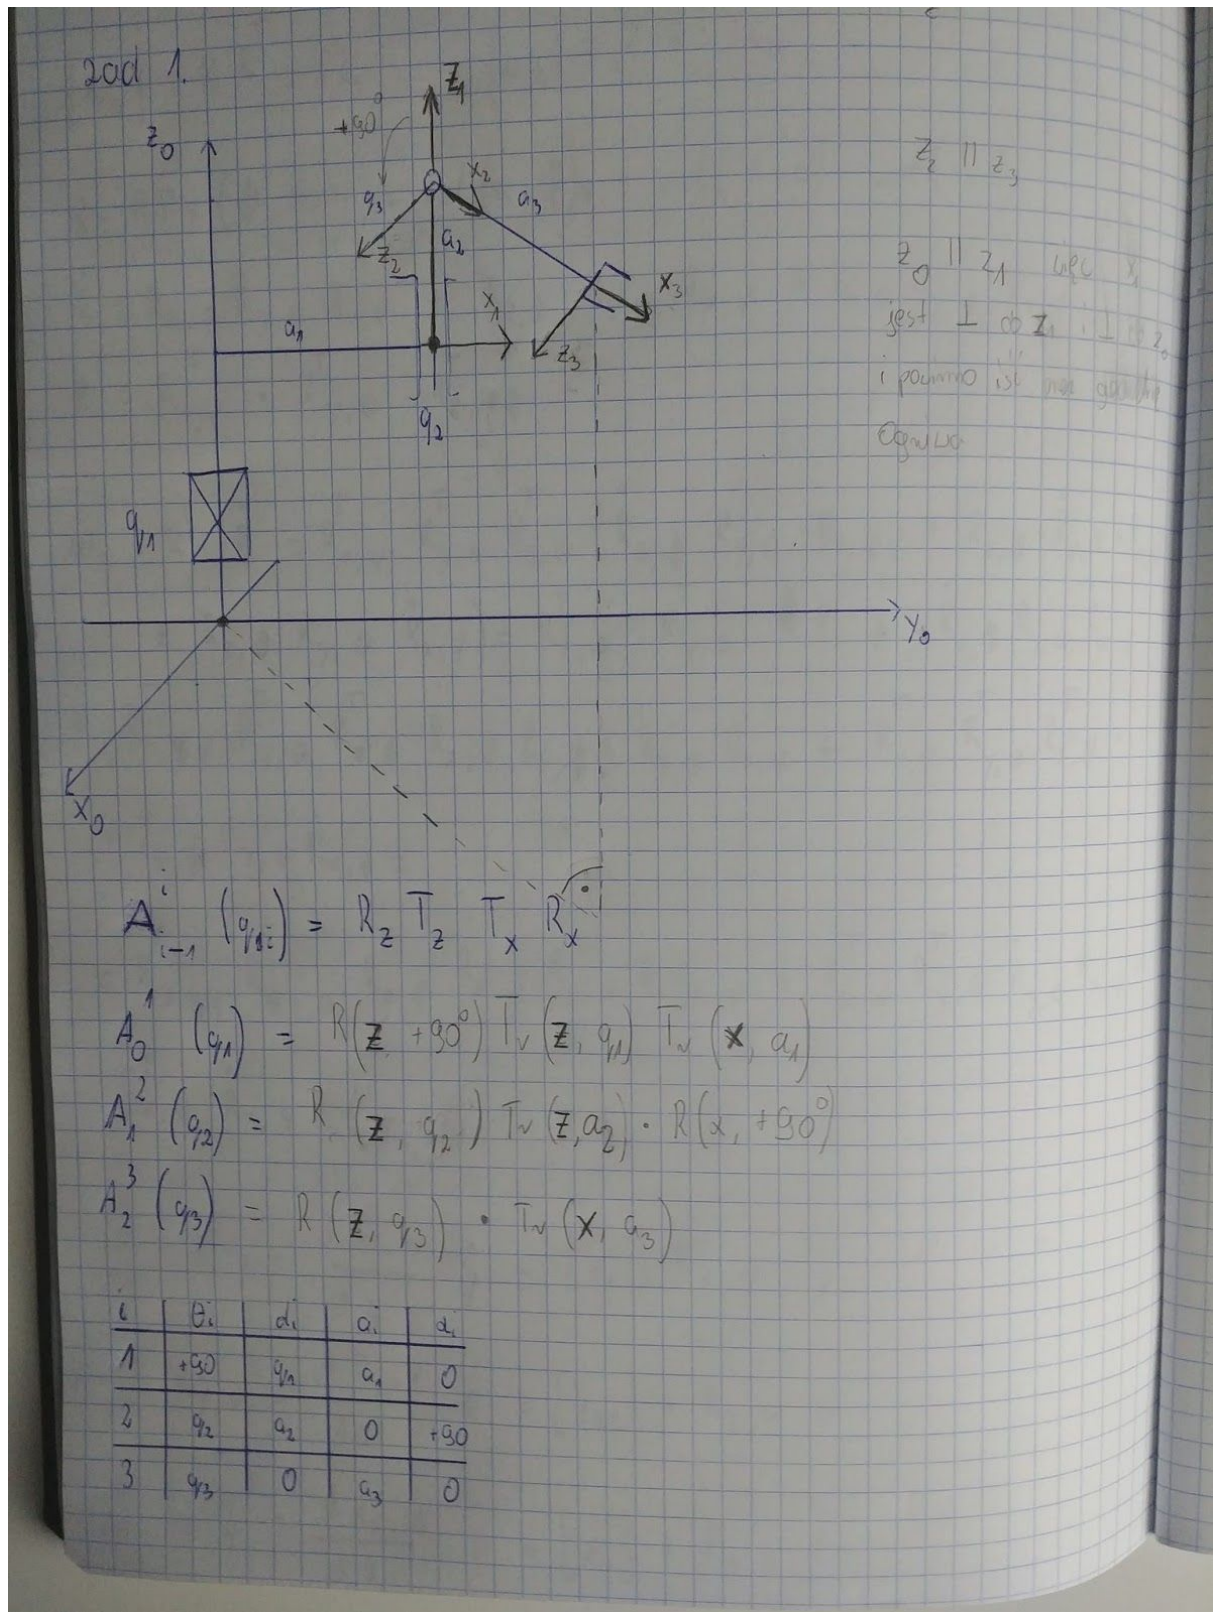 zad 1.
z₀
+90°
z₁
q₃
x₂
a₃
z₂
a₂
x₃
a₁
x₁
z₃
q₂
q₁
y₀
x₀
z₂ || z₃
z₀ || z₁ więc x₁
jest ⊥ do z₁ i ⊥ z₀
i powinno iść
ogniwa
A^i_{i-1} (q_i) = R_z T_z T_x R_x
A₀¹ (q₁) = R(z, +90°) Tr (z, q₁) Tr (x, a₁)
A₁² (q₂) = R (z, q₂) Tr (z, a₂) · R(x, +90°)
A₂³ (q₃) = R (z, q₃) · Tr (x, a₃)
i θi di ai αi
1 +90 q₁ a₁ 0
2 q₂ a₂ 0 +90
3 q₃ 0 a₃ 0